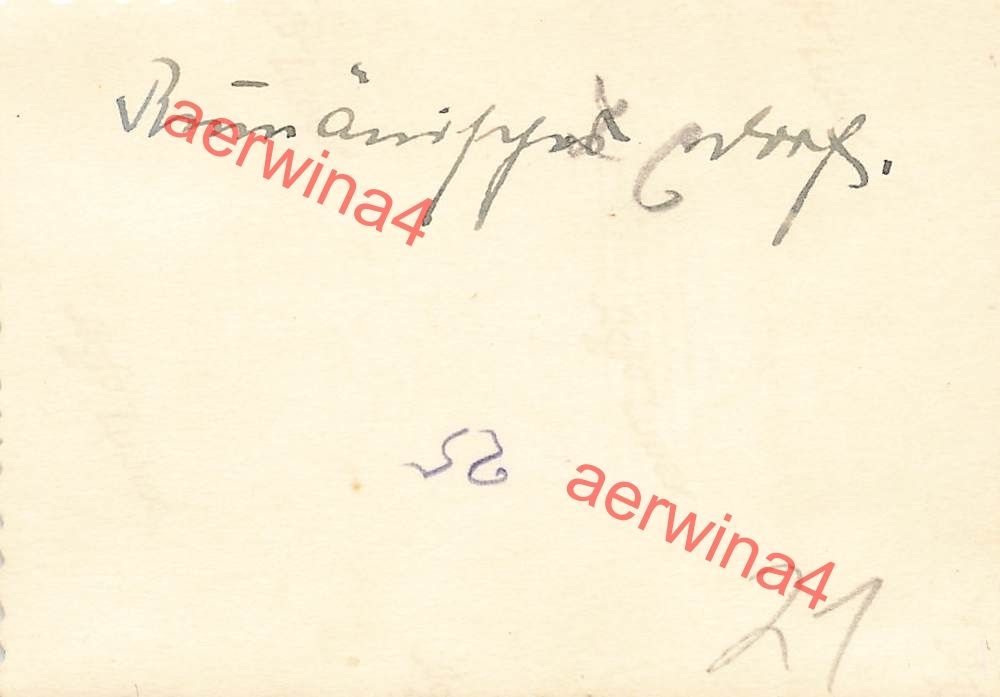 Rumänisches Dorf.
aerwina4
52
aerwina4
21